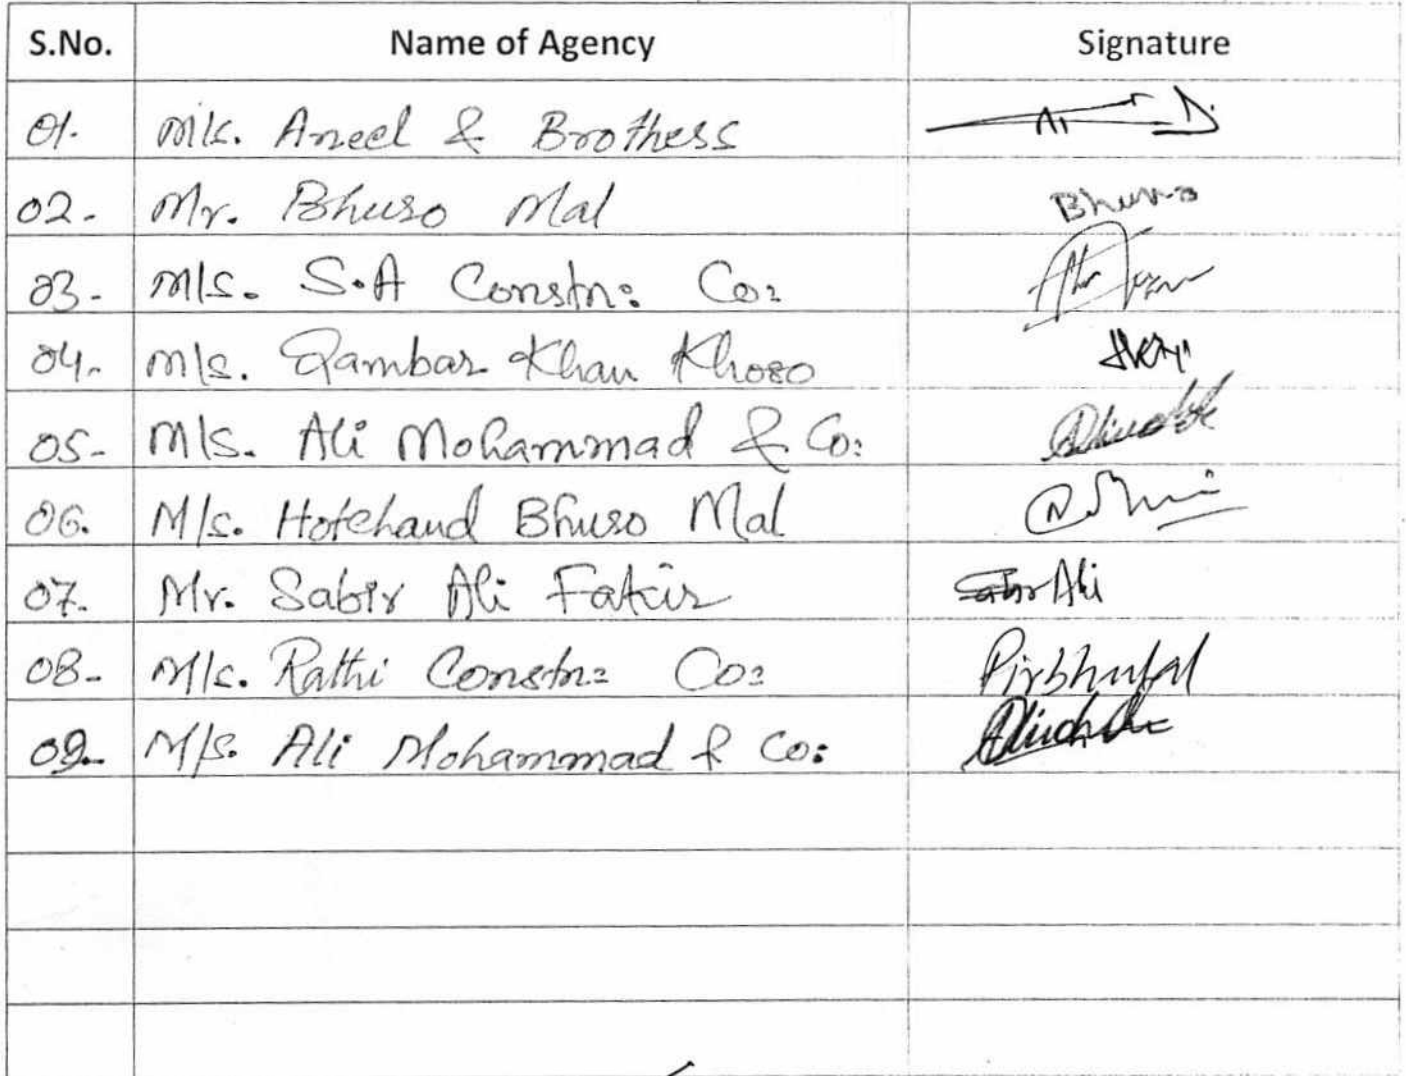 S.No. Name of Agency Signature
01. M/s. Aneel & Brothers
02. Mr. Bhuro Mal Bhuro
03. M/s. S.A Constn: Co:
04. M/s. Qambar Khan Khoso
05. M/s. Ali Mohammad & Co:
06. M/s. Hotchand Bhuro Mal
07. Mr. Sabir Ali Fakir Sabir Ali
08. M/s. Rathi Constn: Co: Pirbhulal
09. M/s. Ali Mohammad & Co: